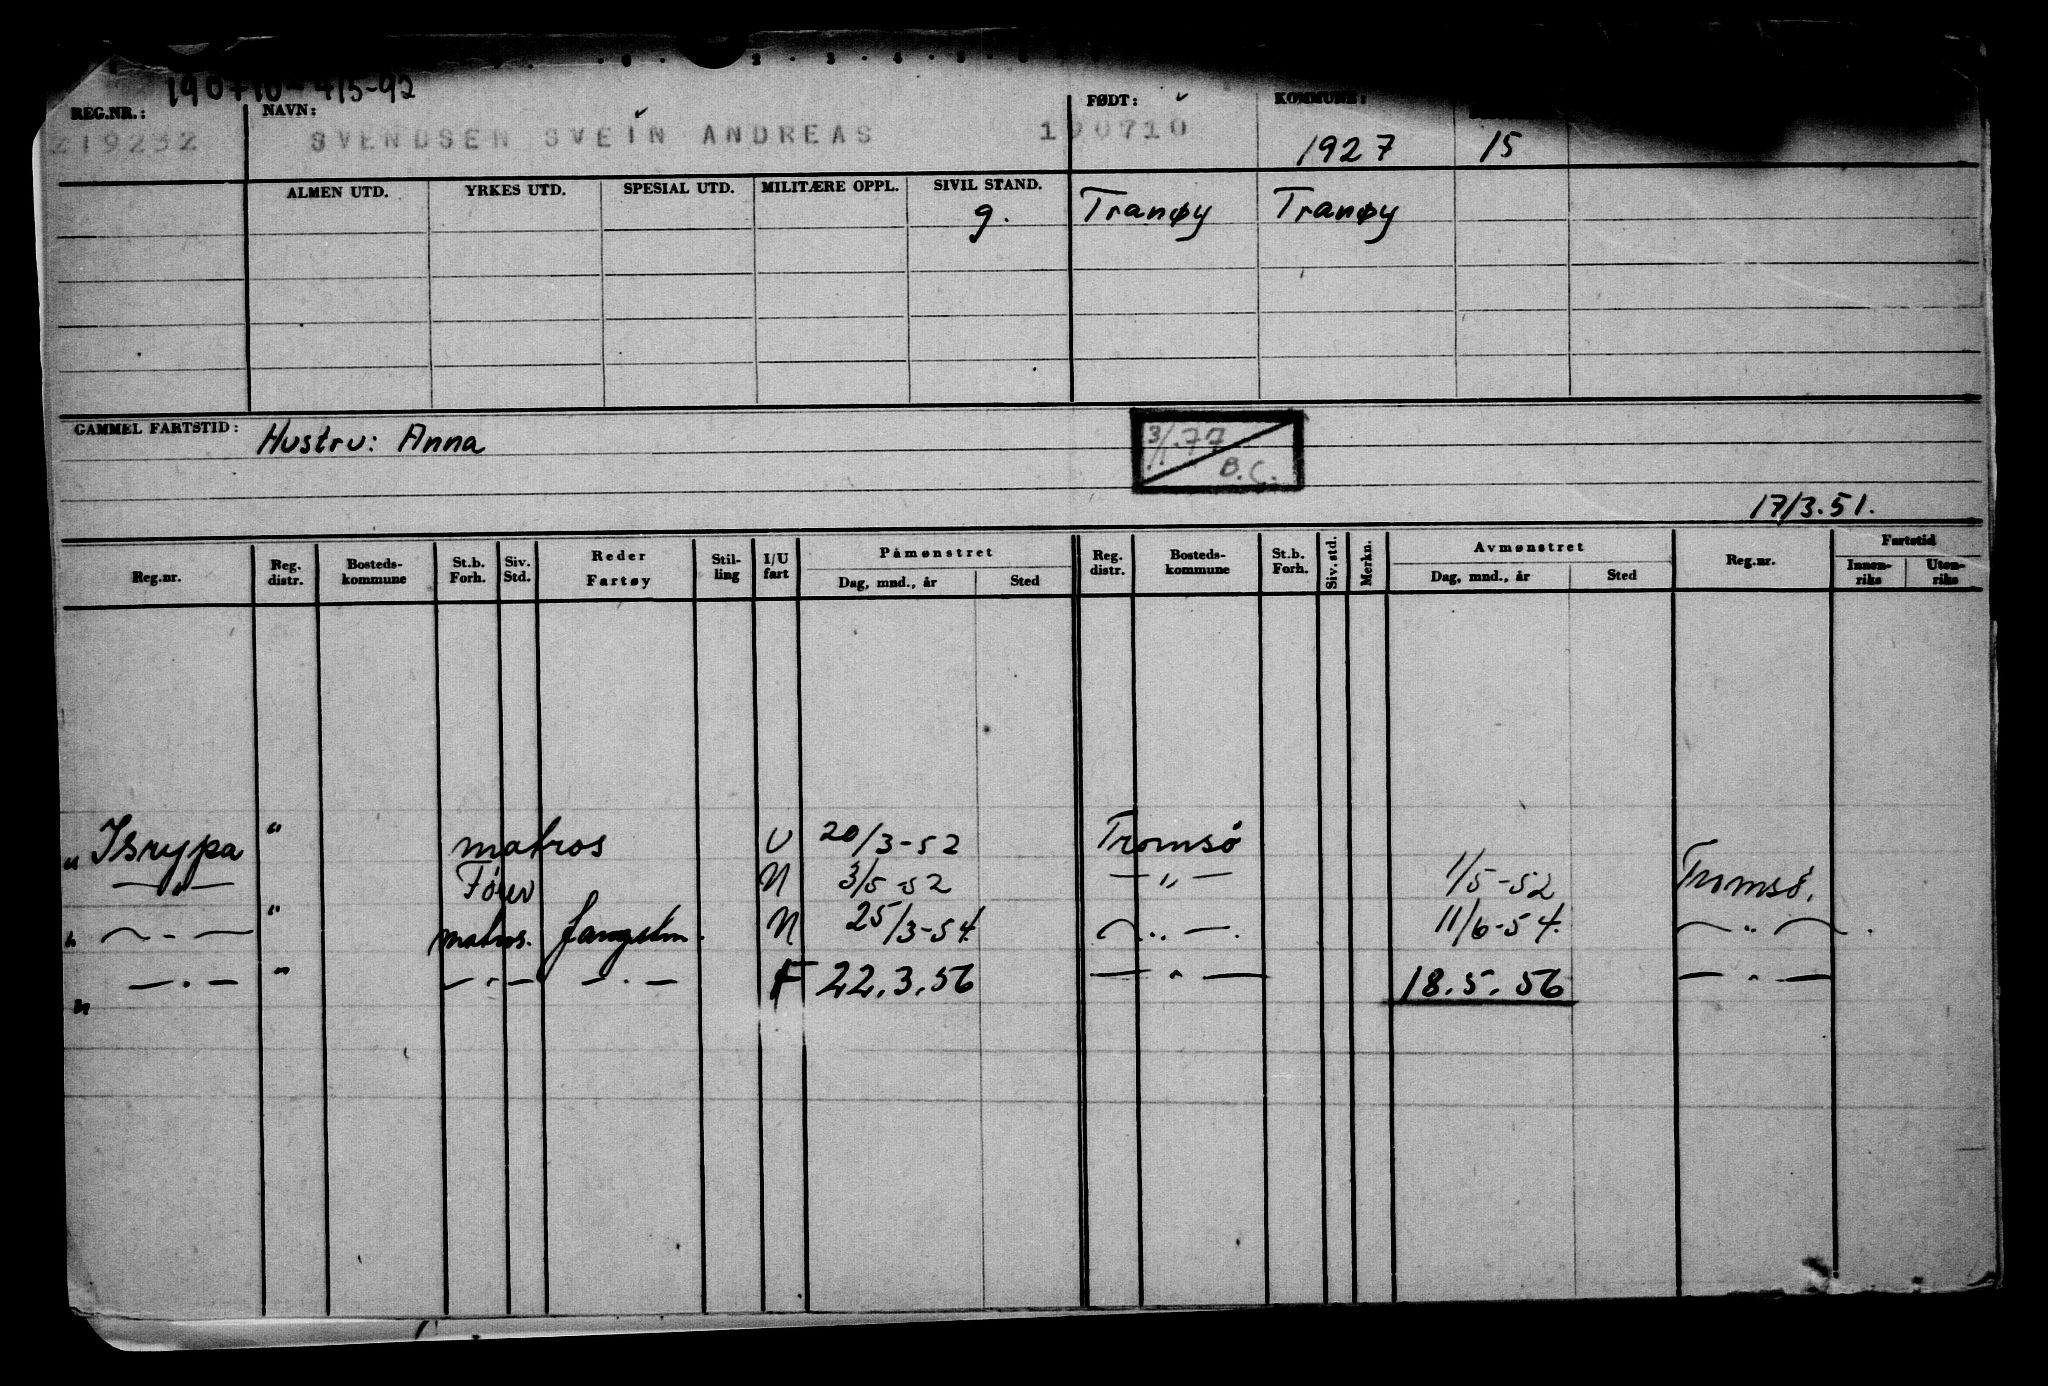 190710-415-92
REG.NR.: NAVN: FØDT: KOMMUNE:
219232 SVENDSEN SVEIN ANDREAS 190710 1927 15
ALMEN UTD. YRKES UTD. SPESIAL UTD. MILITÆRE OPPL. SIVIL STAND.
g. Tranøy Tranøy
GAMMEL FARTSTID: Hustru: Anna
3/1.77
B.C.
17/3.51.
Reg.nr. Reg. distr. Bosteds-kommune St.b. Forh. Siv. Std. Reder Fartøy Stil-ling I/U fart Påmønstret Dag, mnd., år Sted Reg. distr. Bosteds-kommune St.b. Forh. Siv. std. Merkn. Avmønstret Dag, mnd., år Sted Reg.nr. Fartstid Innen-riks Uten-riks
" Isrypa " matros U 20/3-52 Tromsø
— " — N 3/5-52 — " — 1/5-52 Tromsø.
" — " — " matros. fangstm. N 25/3-54 — " — 11/6-54. — " —
" — " — " — " — — " — F 22.3.56 — " — 18.5.56 — " —